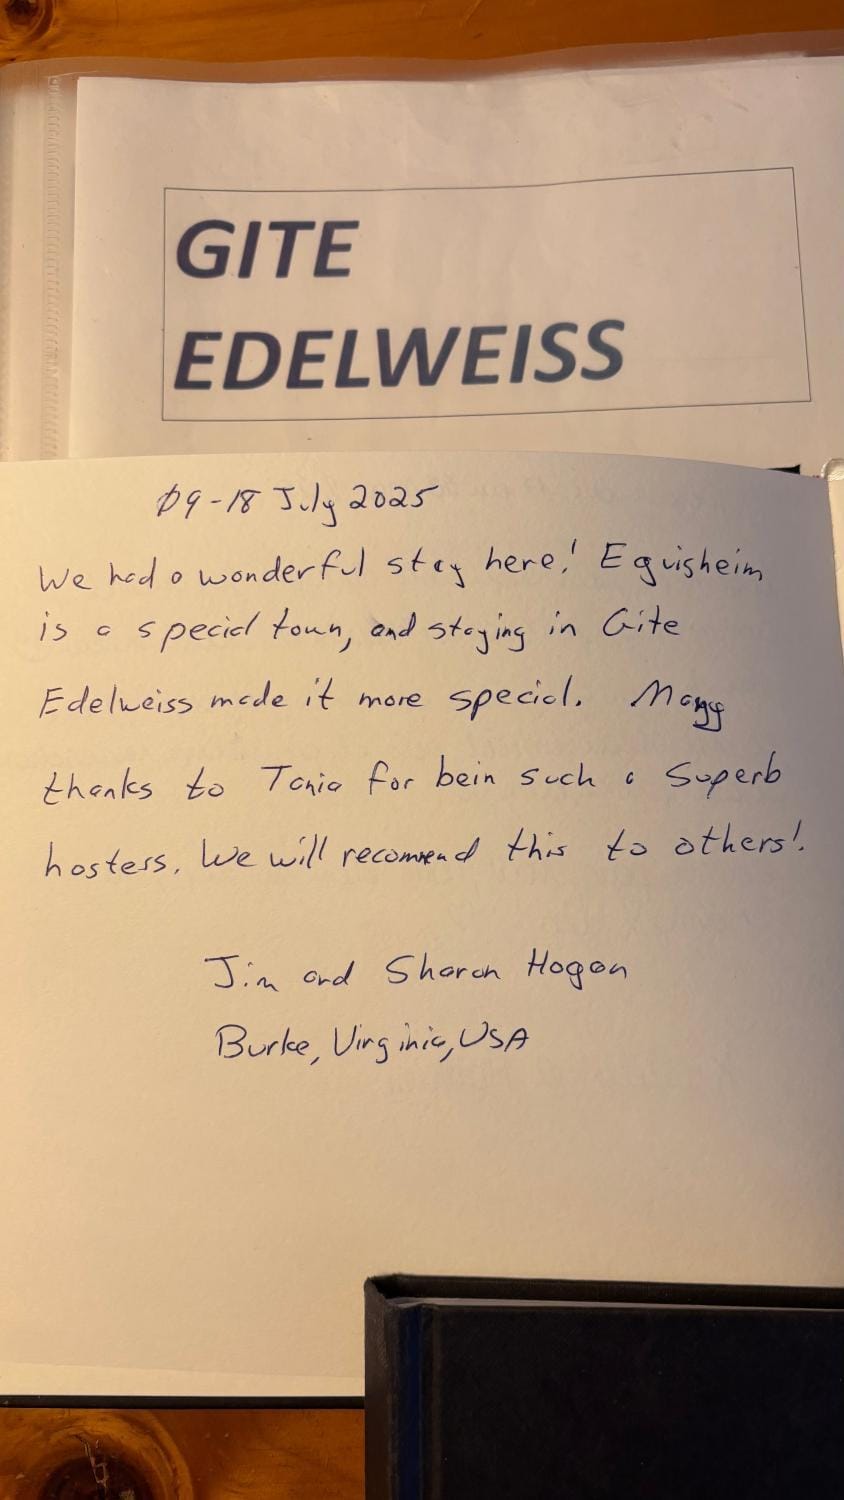 GITE
EDELWEISS
09-18 July 2025
We had a wonderful stay here! Eguisheim
is a special town, and staying in Gite
Edelweiss made it more special. Many
thanks to Tania for bein such a superb
hostess. We will recommend this to others!
Jim and Sharon Hogan
Burke, Virginia, USA